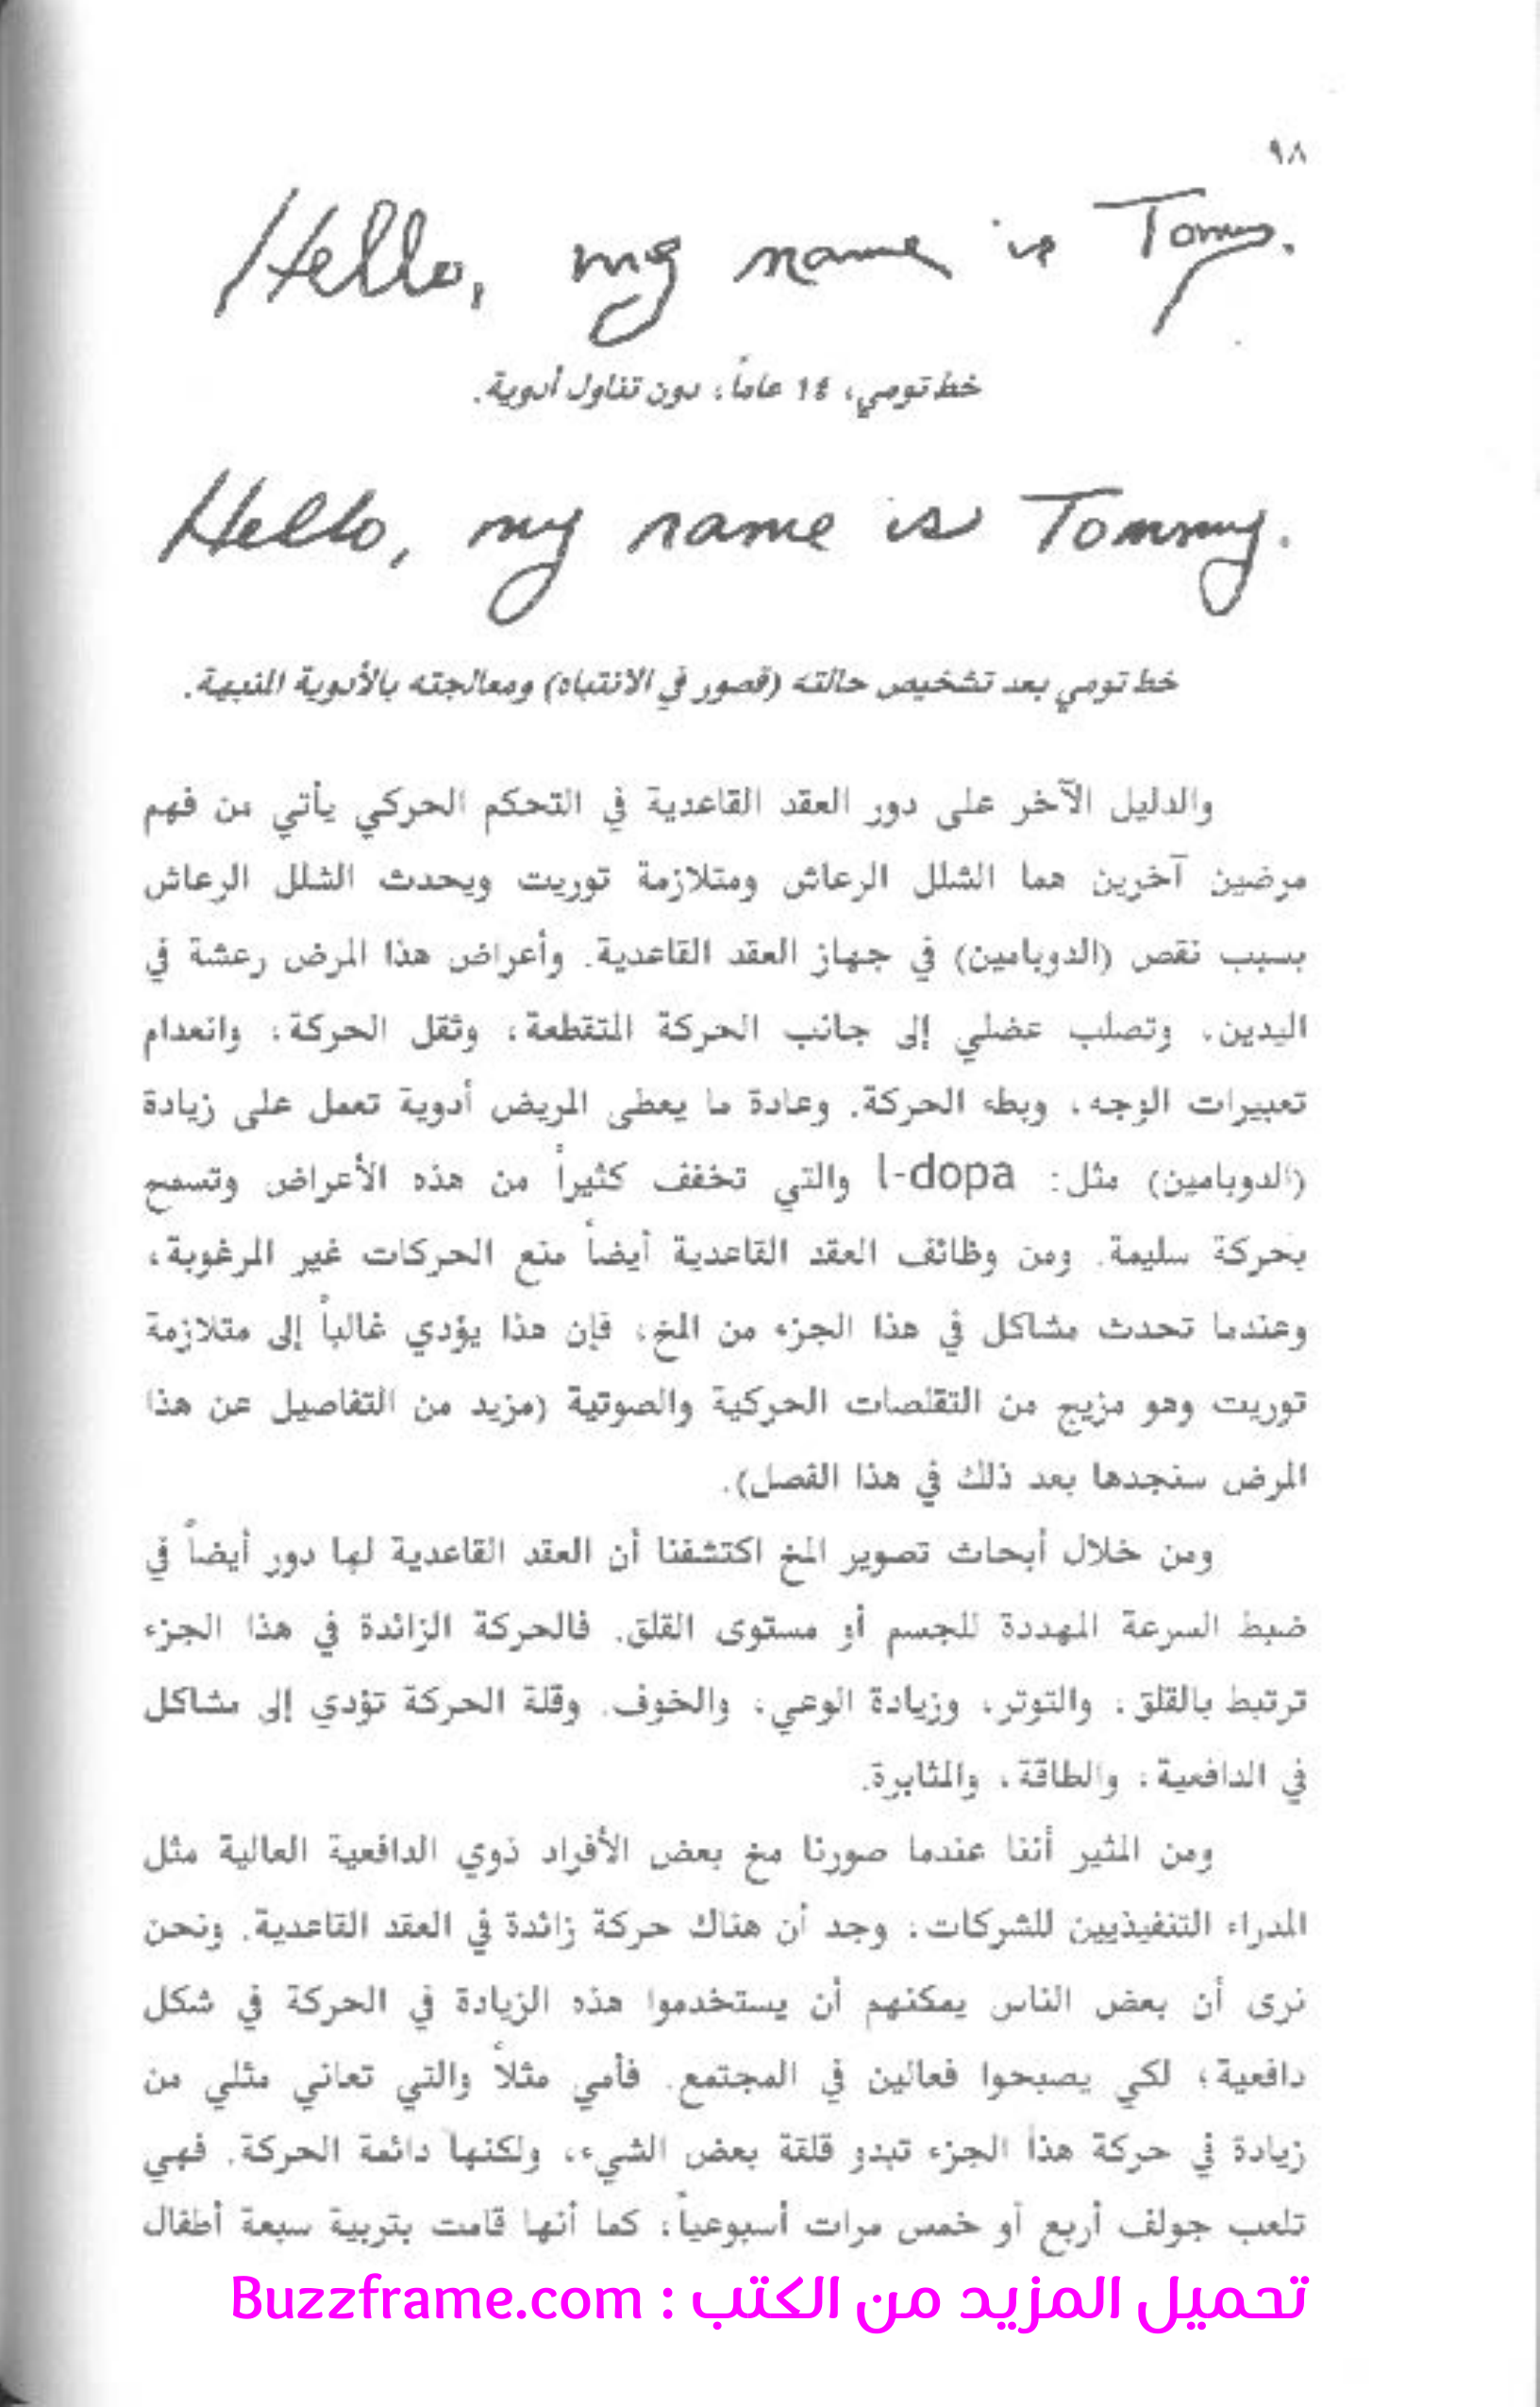 ٩٨
Hello, my name is Tommy.
خط تومي، 14 عاماً، دون تناول أدوية.
Hello, my name is Tommy.
خط تومي بعد تشخيص حالته (قصور في الانتباه) ومعالجته بالأدوية المنبهة.
والدليل الآخر على دور العقد القاعدية في التحكم الحركي يأتي من فهم
مرضين آخرين هما الشلل الرعاش ومتلازمة توريت ويحدث الشلل الرعاش
بسبب نقص (الدوبامين) في جهاز العقد القاعدية. وأعراض هذا المرض رعشة في
اليدين، وتصلب عضلي إلى جانب الحركة المتقطعة، وثقل الحركة، وانعدام
تعبيرات الوجه، وبطء الحركة. وعادة ما يعطى المريض أدوية تعمل على زيادة
(الدوبامين) مثل: l-dopa والتي تخفف كثيراً من هذه الأعراض وتسمح
بحركة سليمة. ومن وظائف العقد القاعدية أيضاً منع الحركات غير المرغوبة،
وعندما تحدث مشاكل في هذا الجزء من المخ، فإن هذا يؤدي غالباً إلى متلازمة
توريت وهو مزيج من التقلصات الحركية والصوتية (مزيد من التفاصيل عن هذا
المرض سنجدها بعد ذلك في هذا الفصل).
ومن خلال أبحاث تصوير المخ اكتشفنا أن العقد القاعدية لها دور أيضاً في
ضبط السرعة المهددة للجسم أو مستوى القلق. فالحركة الزائدة في هذا الجزء
ترتبط بالقلق، والتوتر، وزيادة الوعي، والخوف. وقلة الحركة تؤدي إلى مشاكل
في الدافعية، والطاقة، والمثابرة.
ومن المثير أننا عندما صورنا مخ بعض الأفراد ذوي الدافعية العالية مثل
المدراء التنفيذيين للشركات، وجد أن هناك حركة زائدة في العقد القاعدية. ونحن
نرى أن بعض الناس يمكنهم أن يستخدموا هذه الزيادة في الحركة في شكل
دافعية؛ لكي يصبحوا فعالين في المجتمع. فأمي مثلاً والتي تعاني مثلي من
زيادة في حركة هذا الجزء تبدو قلقة بعض الشيء، ولكنها دائمة الحركة. فهي
تلعب جولف أربع أو خمس مرات أسبوعياً، كما أنها قامت بتربية سبعة أطفال
تحميل المزيد من الكتب : Buzzframe.com